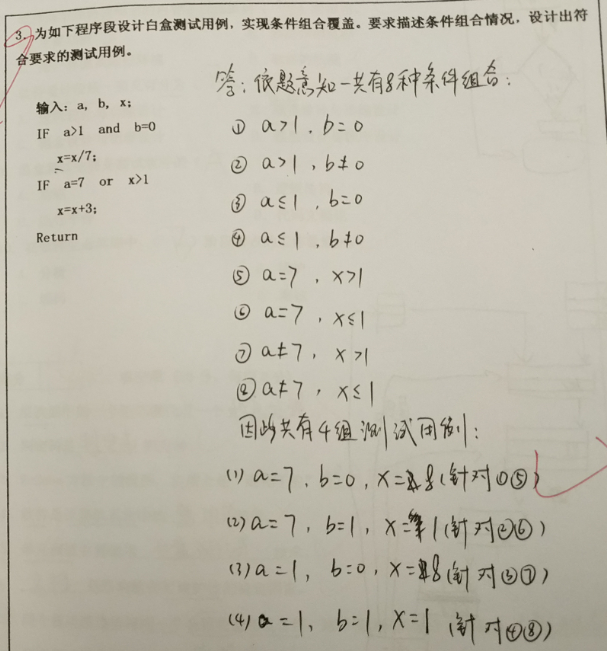 3. 为如下程序段设计白盒测试用例，实现条件组合覆盖。要求描述条件组合情况，设计出符
合要求的测试用例。
输入：a, b, x;
IF a>1 and b=0
x=x/7;
IF a=7 or x>1
x=x+3;
Return
答：依题意知一共有8种条件组合：
① a>1，b=0
② a>1，b≠0
③ a≤1，b=0
④ a≤1，b≠0
⑤ a=7，x>1
⑥ a=7，x≤1
⑦ a≠7，x>1
⑧ a≠7，x≤1
因此共有4组测试用例：
(1) a=7，b=0，x=8(针对①⑤)
(2) a=7，b=1，x=1(针对②⑥)
(3) a=1，b=0，x=8(针对③⑦)
(4) a=1，b=1，x=1 (针对④⑧)